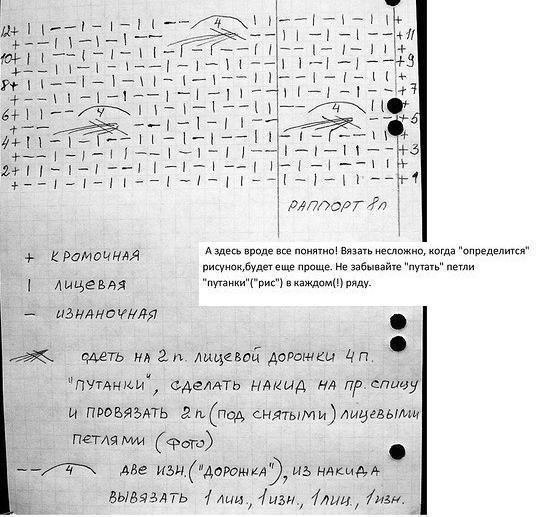 4
12+
+11
10+
+9
8+
+7
4 4
6+
+5
4+
+3
2+
+1
РАППОРТ 8п
А здесь вроде все понятно! Вязать несложно, когда "определится"
рисунок,будет еще проще. Не забывайте "путать" петли
"путанки"("рис") в каждом(!) ряду.
+ КРОМОЧНАЯ
| ЛИЦЕВАЯ
– ИЗНАНОЧНАЯ
ОДЕТЬ НА 2 п. ЛИЦЕВОЙ ДОРОЖКИ 4 п.
"ПУТАНКИ", СДЕЛАТЬ НАКИД НА ПР. СПИЦУ
И ПРОВЯЗАТЬ 2п (ПОД СНЯТЫМИ) ЛИЦЕВЫМИ
ПЕТЛЯМИ (ФОТО)
–– 4 ДВЕ ИЗН. ("ДОРОЖКА"), ИЗ НАКИДА
ВЫВЯЗАТЬ 1 ЛИЦ., 1 ИЗН., 1 ЛИЦ., 1 ИЗН.